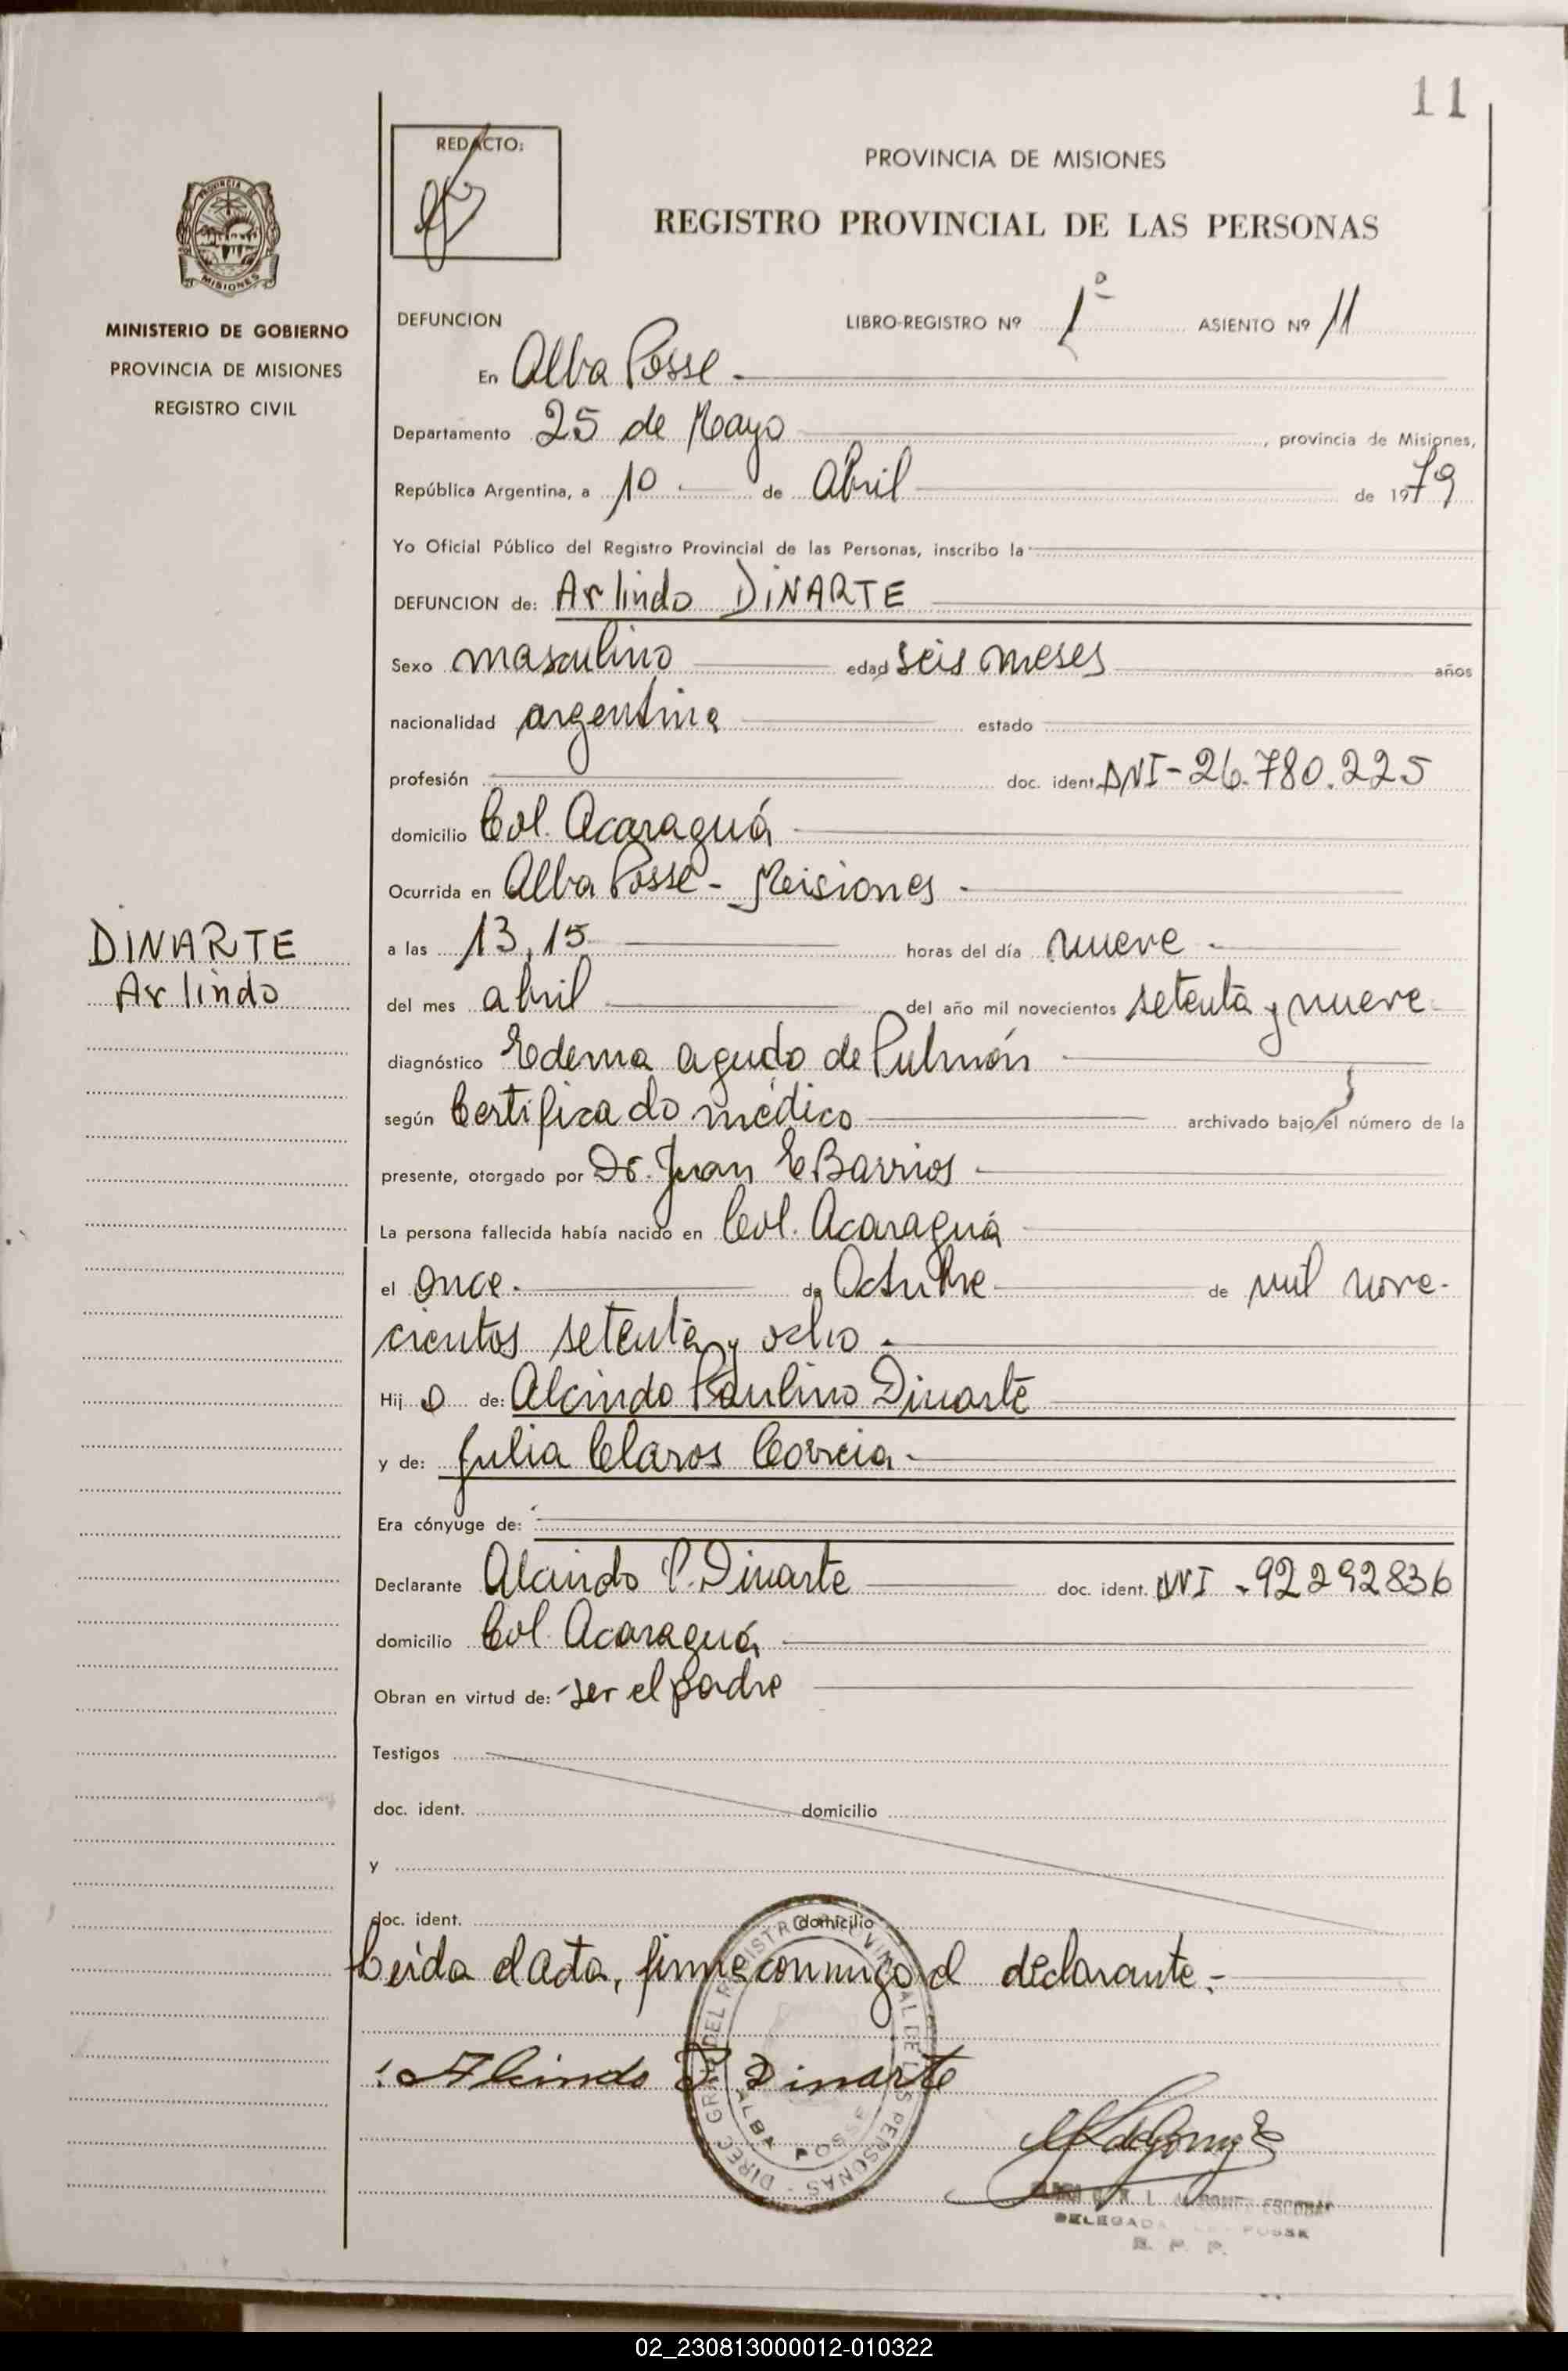 11
REDACTO:
PROVINCIA DE MISIONES
REGISTRO PROVINCIAL DE LAS PERSONAS
MISIONES
MINISTERIO DE GOBIERNO
PROVINCIA DE MISIONES
REGISTRO CIVIL
DEFUNCION LIBRO-REGISTRO Nº 1º ASIENTO Nº 11
En Alba Posse -
Departamento 25 de Mayo, provincia de Misiones,
República Argentina, a 10 de Abril de 1979
Yo Oficial Público del Registro Provincial de las Personas, inscribo la
DEFUNCION de: Arlindo DINARTE
Sexo masculino edad seis meses años
nacionalidad argentina estado
profesión doc. ident. DNI-26.780.225
domicilio Col. Acaraguá
Ocurrida en Alba Posse - Misiones -
DINARTE
Arlindo
a las 13,15 horas del día nueve -
del mes abril del año mil novecientos setenta y nueve
diagnóstico Edema agudo de Pulmón
según Certificado médico archivado bajo el número de la
presente, otorgado por Dr. Juan E Barrios
La persona fallecida había nacido en Col. Acaraguá
el once. de Octubre de mil nove-
cientos setenta y ocho -
Hijo de: Alcindo Paulino Dinarte
y de: Julia Claros Correia -
Era cónyuge de:
Declarante Alcindo P. Dinarte doc. ident. DNI - 92292836
domicilio Col. Acaraguá
Obran en virtud de: -ser el padre
Testigos
doc. ident. domicilio
y
doc. ident. domicilio
Leida el acta, firma conmigo el declarante.-
Alcindo P Dinarte
DIREC GRAL DEL REGISTRO PROVINCIAL DE LAS PERSONAS - ALBA POSSE
ESCOBAR
DELEGADA POSSE
R. P. P.
02_230813000012-010322